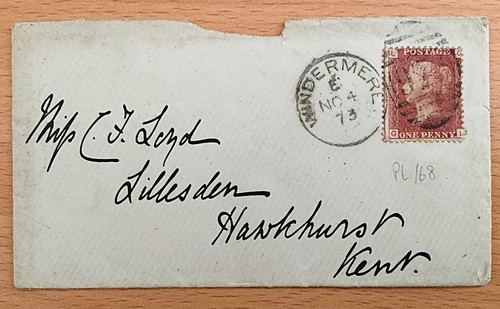 WINDERMERE
E
NO 4
73
POSTAGE
ONE PENNY
PL 168
Miss C. F. Loyd
Lillesden
Hawkhurst
Kent.